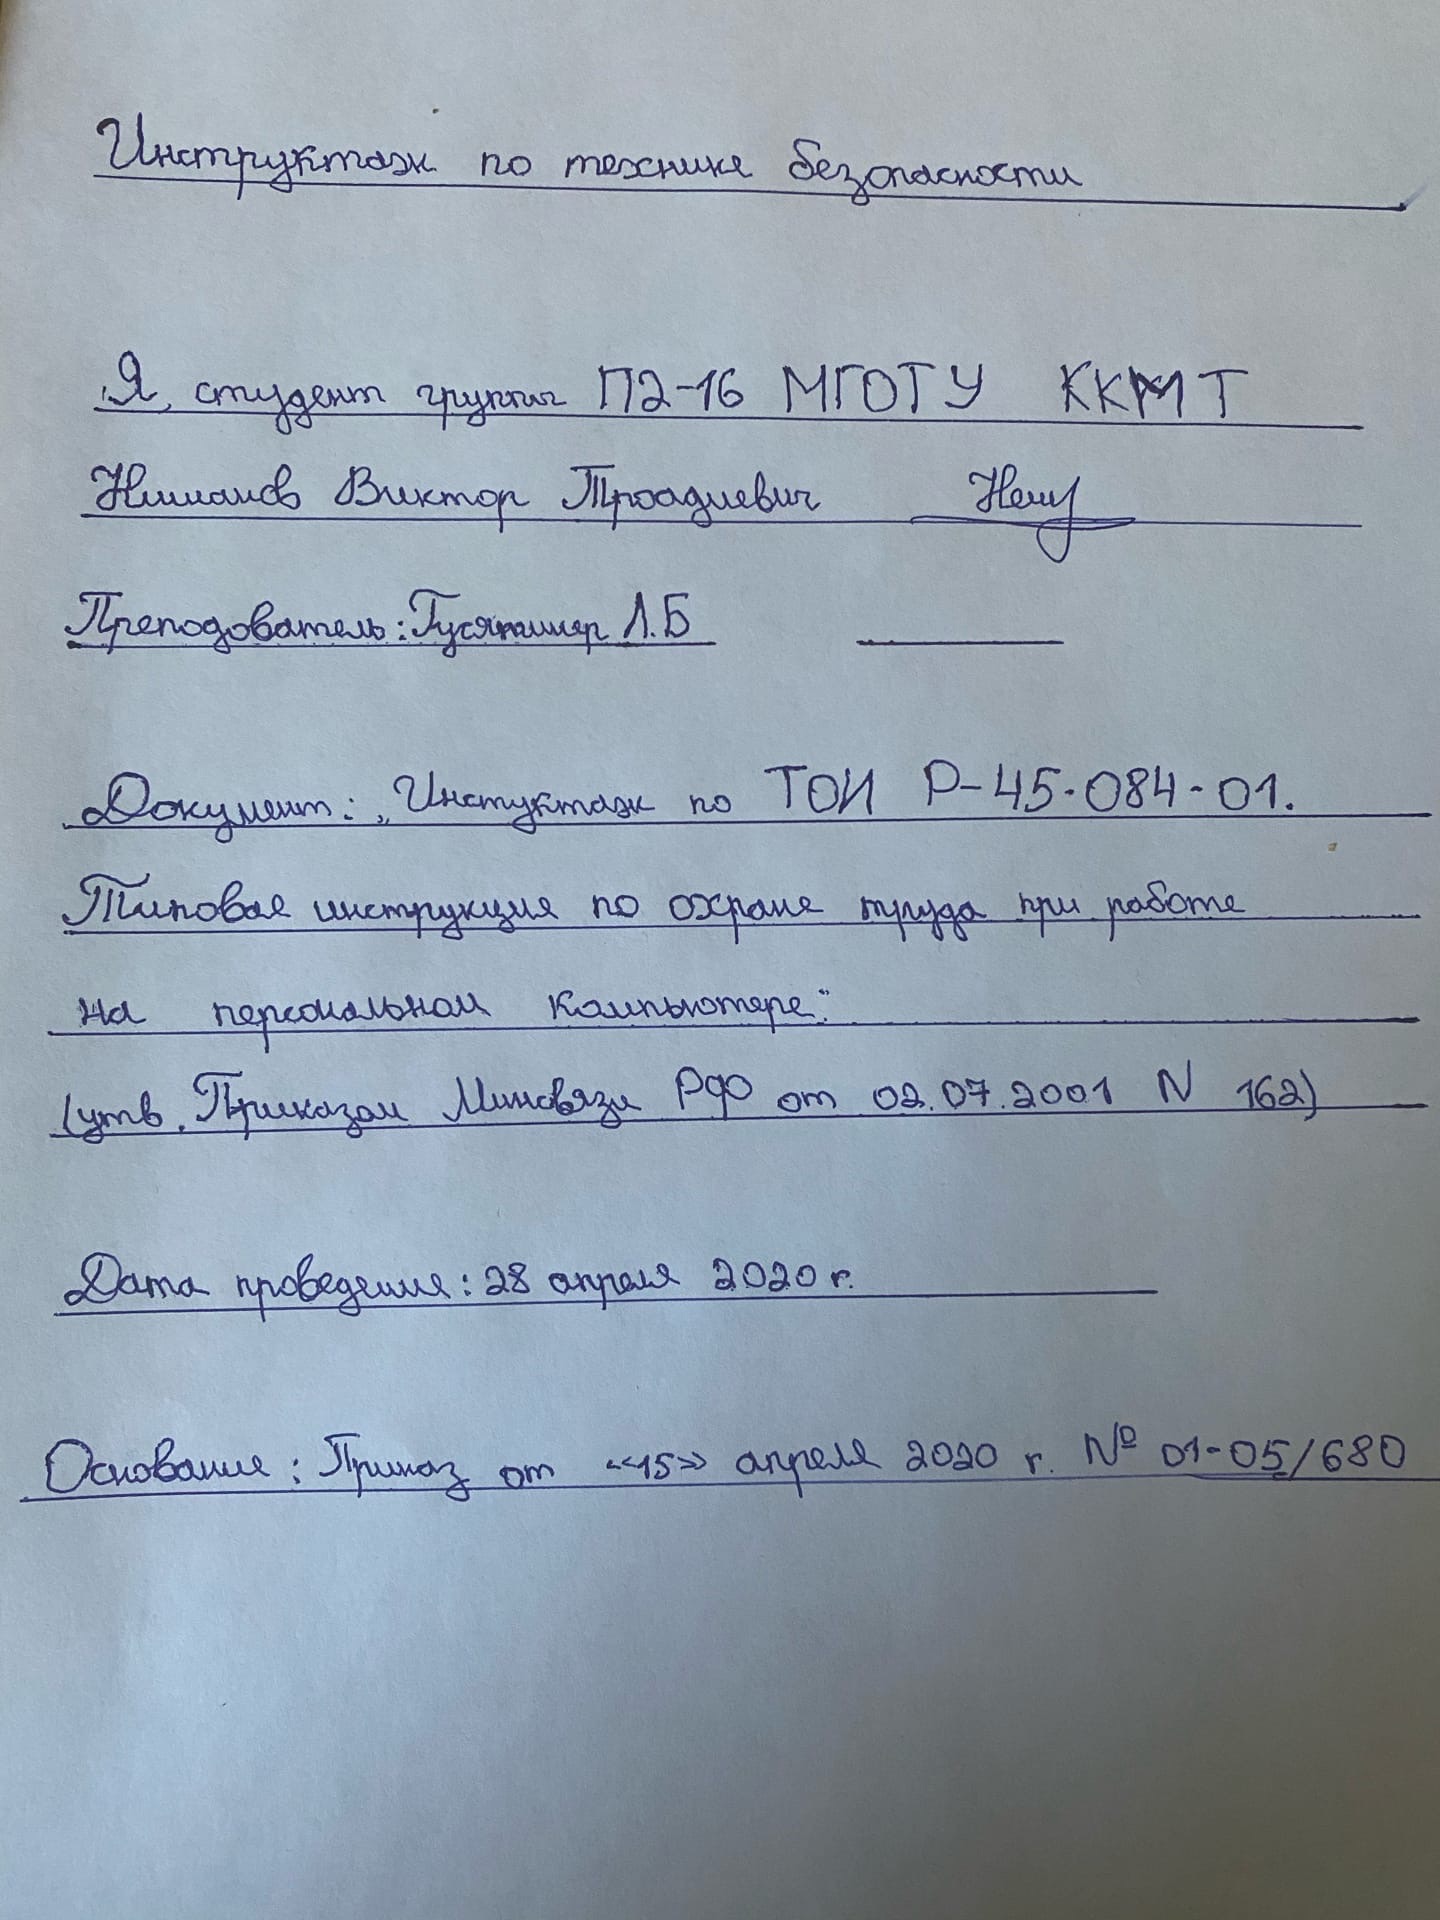 Инструктаж по технике безопасности
Я, студент группы П2-16 МГОТУ ККМТ
Виктор
Преподователь: Л.Б
Документ: „Инстуктаж по ТОИ Р-45-084-01.
Типовая инструкция по охране труда при работе
на персональном компьютере."
(утв. Приказом Минсвязи РФ от 02.07.2001 N 162)
Дата проведения: 28 апреля 2020 г.
Основание: Приказ от «15» апреля 2020 г. № 01-05/680